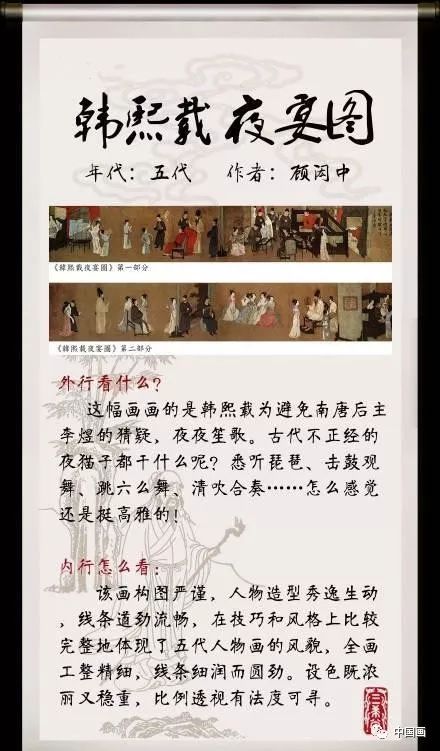 韩熙载夜宴图
年代：五代 作者：顾闳中
《韓熙載夜宴圖》第一部分
《韓熙載夜宴圖》第二部分
外行看什么？
这幅画画的是韩熙载为避免南唐后主
李煜的猜疑，夜夜笙歌。古代不正经的
夜猫子都干什么呢？悉听琵琶、击鼓观
舞、跳六么舞、清吹合奏……怎么感觉
还是挺高雅的！
内行怎么看：
该画构图严谨，人物造型秀逸生动
，线条遒劲流畅，在技巧和风格上比较
完整地体现了五代人物画的风貌，全画
工整精细，线条细润而圆劲。设色既浓
丽又稳重，比例透视有法度可寻。
中国画